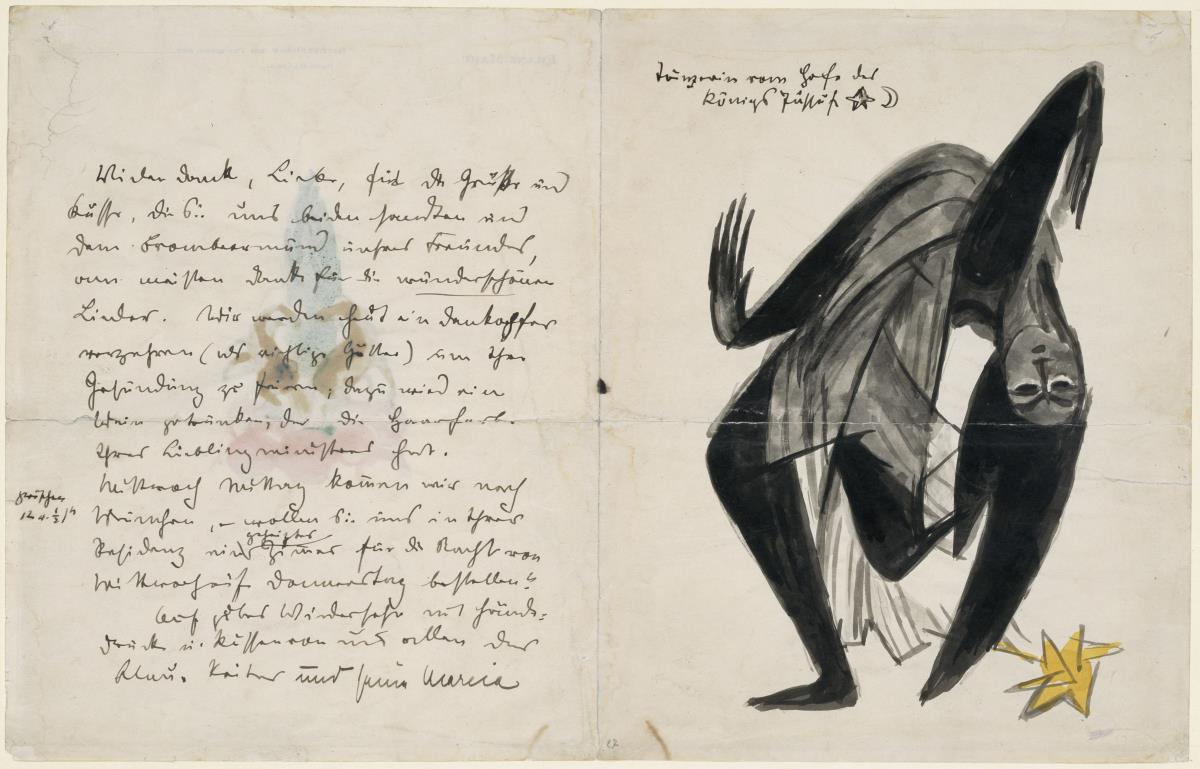 Tänzerin vom Hofe des
Königs Jussuf
Wieder Dank, Liebe, für die Grüße und
Küsse, die Sie uns beiden sandten und
dem Brombeermund unseres Freundes,
am meisten Dank für die wunderschönen
Lieder. Wir werden heut ein Dankopfer
verzehren (als richtige Götter) um Ihre
Gesundung zu feiern; dazu wird ein
Wein getrunken, der die Haarfarbe
Ihres Lieblingministers hat.
Mittwoch Mittag kommen wir nach
zwischen
München, – wollen Sie uns in Ihrer
geheiztes
Residenz ein Zimmer für die Nacht von
Mittwoch auf Donnerstag bestellen?
Auf Wiedersehn mit Hände-
druck u. Küssen von uns allen der
blaue Reiter und seine Mareia